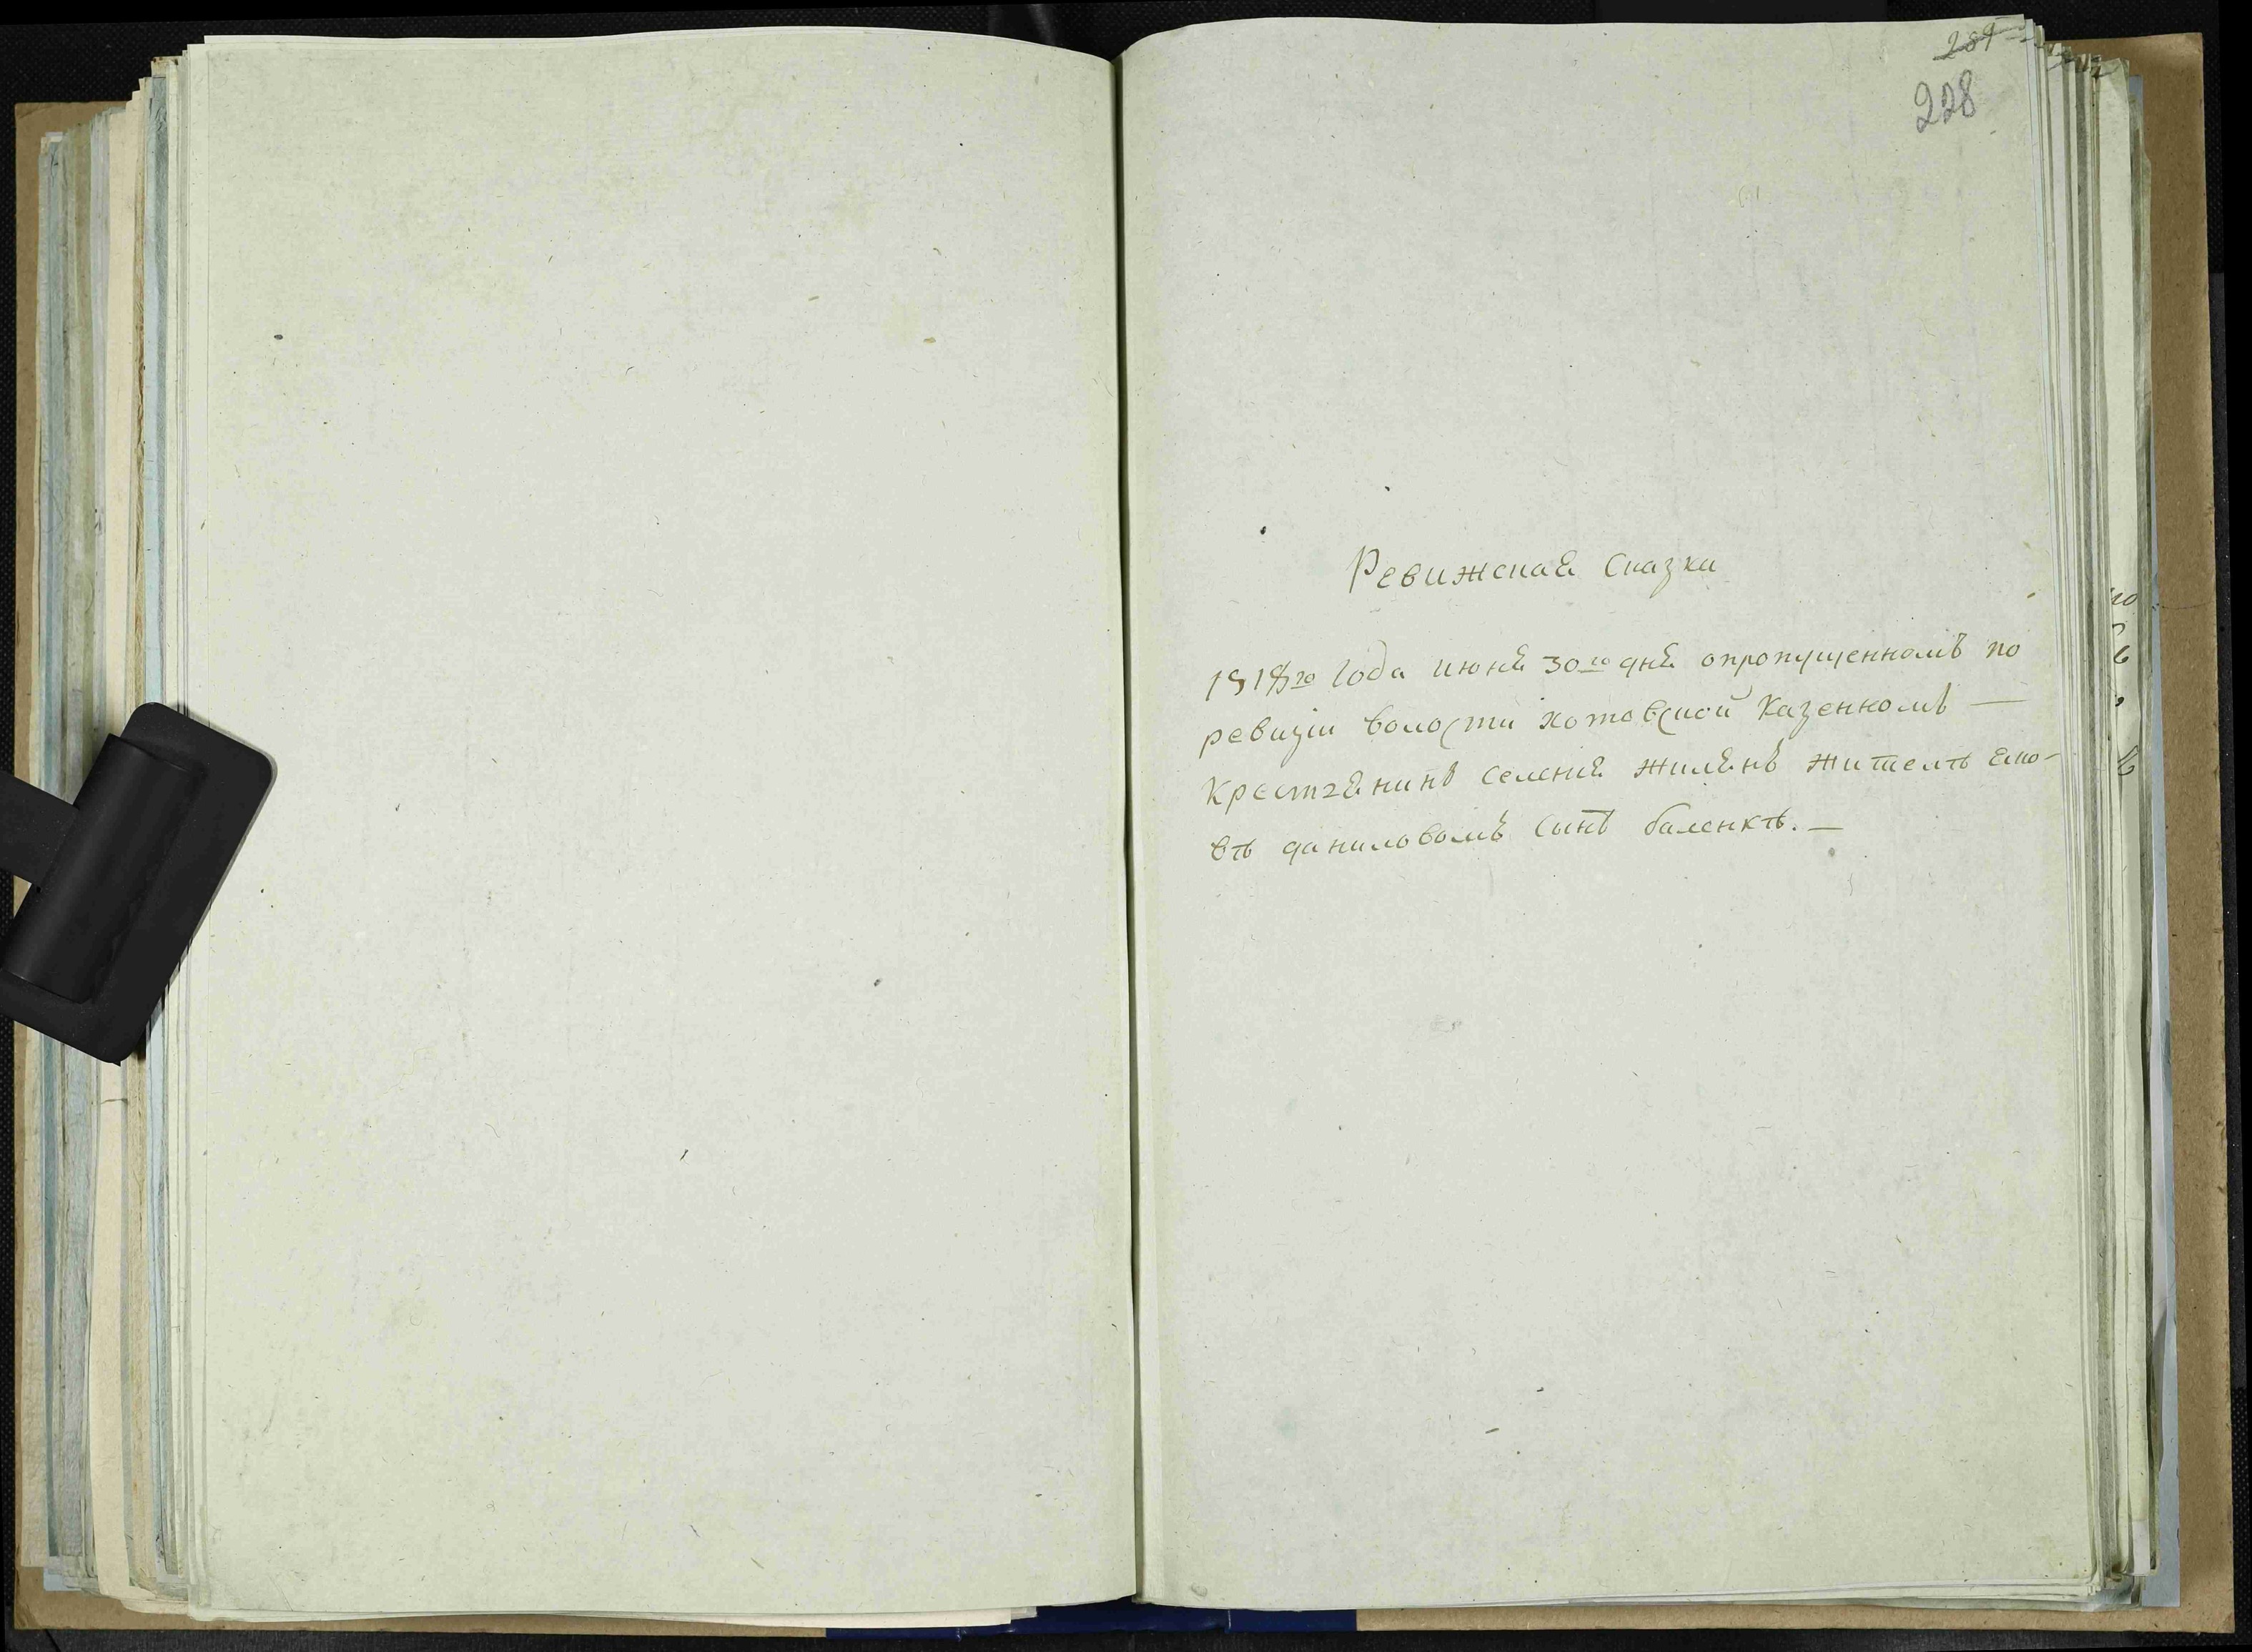 289
228
Ревижская Сказка
1818го года июня 30го дня о пропущенномъ по
ревизіи волости хотовской казенномъ —
крестьянинѣ селения жилянъ жителѣ
вѣ даниловомъ сынѣ баленкѣ. —